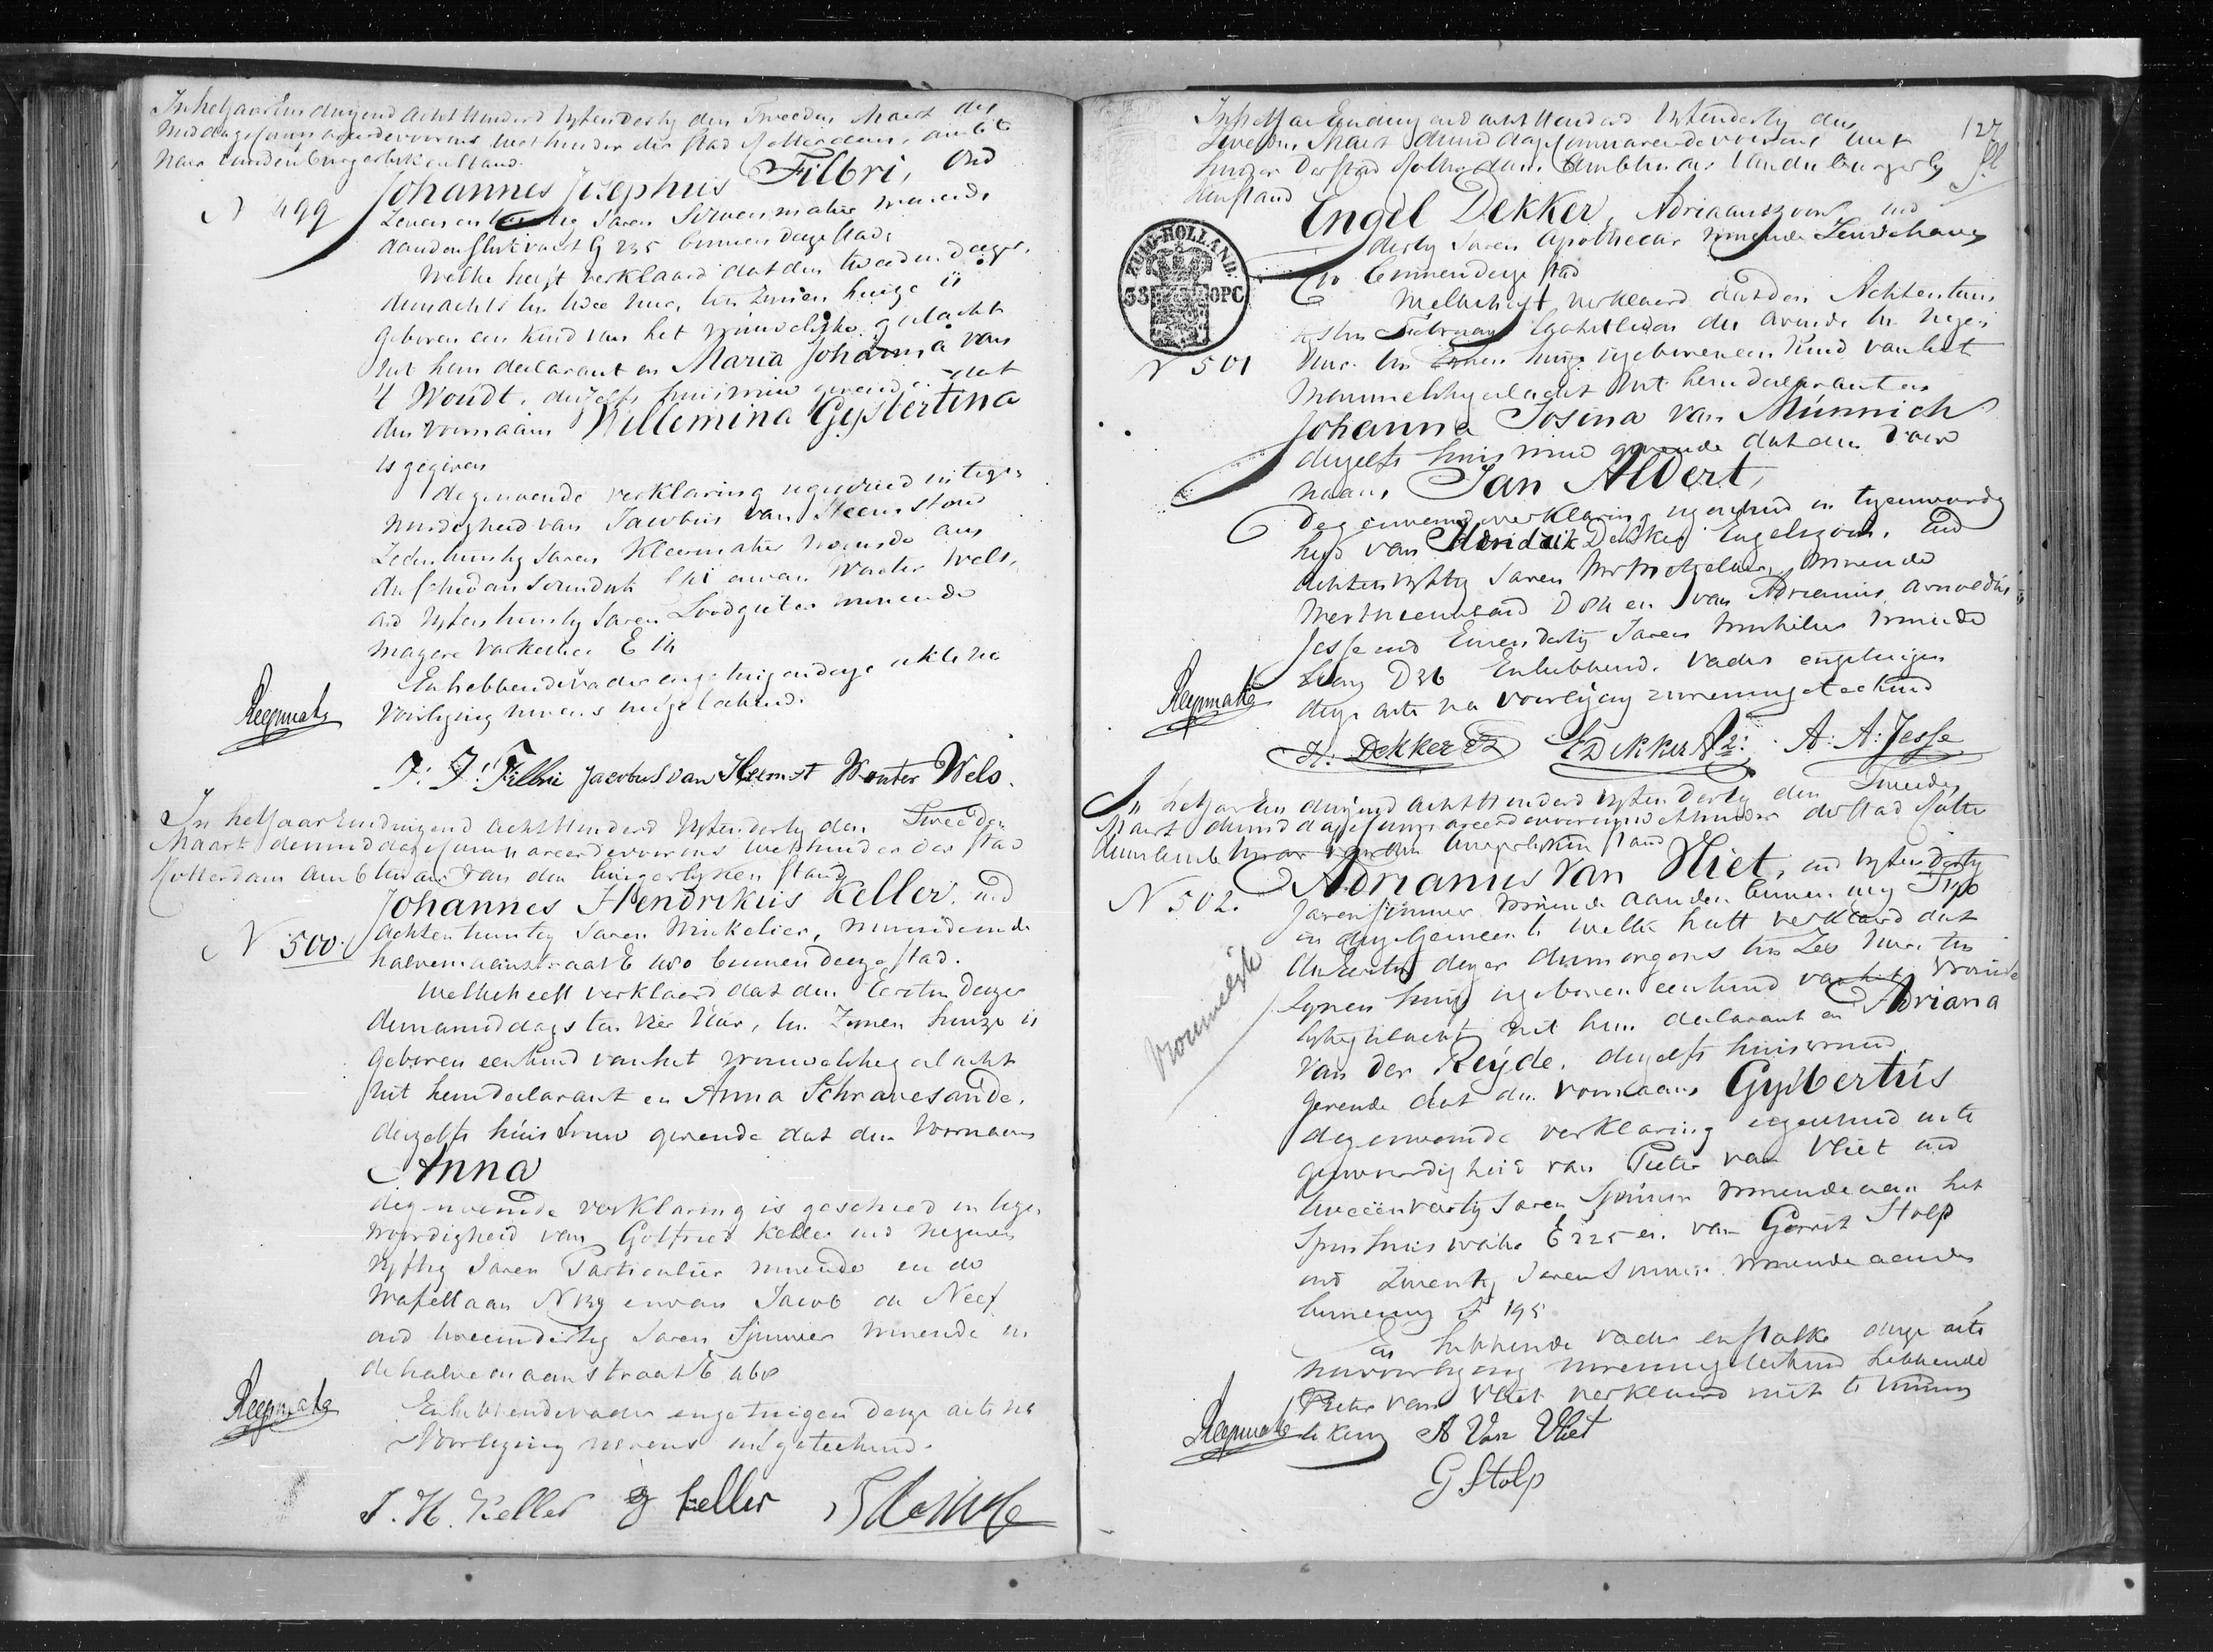 In het Jaar Eenduizend acht Hunderd vyfendertig den Tweeden Maart des
Middags compareerde voor ons Wethouder der stad Rotterdam, ambte
naar van den burgerlyken stand
N 499
Johannes Josephus Filbri, oud
Zevenen Jaren Schoenmaker wonende
aan den G 235 binnen deze stad.
Welke heeft verklaard dat den tweeden dezer,
des nachts ten twee uur, ten zynen huize is
geboren een kind van het vrouwelyke geslacht
uit hem declarant en Maria Johanna van
't Woudt, deszelfs huisvrouw gevende dat
den voornaam Willemina Gysbertina
is gegeven
degenoemde verklaring is geschied in tegen
woordigheid van Jacobus van Heemst oud
Zesentwintig Jaren Kleermaker wonende aan
de Schiedamschendyk en van Wouter Wels,
oud vyfentwintig Jaren Loodgieter wonende
Magere Varkensteeg E
En hebbende vader en getuigen deze akte na
voorlezing nevens ons geteekend.
J: J: Filbri Jacobus van Heemst Wouter Wels.
In het Jaar Eenduizend acht Hunderd vyfendertig den Tweeden
Maart des middags compareerde voor ons Wethouder der stad
Rotterdam Ambtenaar van den burgerlyken stand
Johannes Hendrikus Keller, oud
N 500.
achtentwintig Jaren Winkelier, wonende in de
halvemaanstraat E 480 binnen deze stad.
Welke heeft verklaard dat den Eersten dezer
des namiddags ten vier Uur, ten Zynen huize is
geboren een kind van het vrouwelyke geslacht
uit hem declarant en Anna Schravesande,
deszelfs huisvrouw gevende dat den Voornaam
Anna
degenoemde verklaring is geschied in tegen
woordigheid van Gotfried Keller oud negenen
vyftig Jaren Particulier wonende in de
Wafellaan N 139 en van Jacob de Neef
oud tweeendertig Jaren Spinner wonende in
de halvemaanstraat E 468
En hebbende vader en getuigen deze acte na
Voorlezing nevens ons geteekend.
J. H. Keller G Keller
127
In het Jaar Eenduizend acht Hunderd vyfendertig den
Tweeden Maart des middags compareerde voor ons Wet
houder der stad Rotterdam Ambtenaar van den burgerly
ken stand
ZUID-HOLLAND.
38 OPC
N 501
Engel Dekker, Adriaanszoon, oud
dertig Jaren Apothecar wonende Leuvehaven
binnen deze stad
Welke heeft verklaard dat den Achtentwin
tigsten Februay laatstleden des avonds ten negen
Uur ten Zynen huize is geboren een kind van het
Mannelyke geslacht uit hem declarant en
Johanna Josina van Münnich
deszelfs huisvrouw gevende dat den voor
naam, Jan Aldert,
Degenoemde verklaring is geschied in tegenwoordig
heid van Hendrik Dekker Engelszoon, oud
achtenvyftig Jaren wonende
D en van Adrianus Arnoldus
Jesse oud Eenendertig Jaren Winkelier wonende
D 26 En hebbende vader en getuigen
deze acte na voorlezing nevens ons geteekend
H: Dekker Ez E Dekker Az: A: A: Jesse
In het Jaar Een duizend acht Hunderd vyfendertig den Tweeden
Maart des middags compareerde voor ons Wethouder der stad Rotter
dam Ambtenaar van den burgerlyken stand
N 502.
Adrianus Van Vliet, oud vyfendertig
Jaren spinner wonende aan den binnenweg
in deze gemeente welke heeft verklaard dat
den Eersten dezer des morgens ten Zes Uure ten
Zynen huize is geboren een kind van het vrouwe
vrouwelyk
lyke geslacht uit hem declarant en Adriana
van der Reyde, deszelfs huisvrouw
gevende dat den voornaam Gysbertus
degenoemde verklaring is geschied in te
genwoordigheid van Pieter van Vliet oud
tweeenveertig Jaren Spinner wonende aan het
Spinhuiswater E 225 en van Gerrit Stolp
oud Twentig Jaren Spinner wonende aan den
binnenweg F 195
En hebbende vader en Stolk deze acte
na voorlezing nevens ons geteekend hebbende
Pieter van Vliet verklaard niet te kunnen
teekenen A Van Vliet
G Stolp